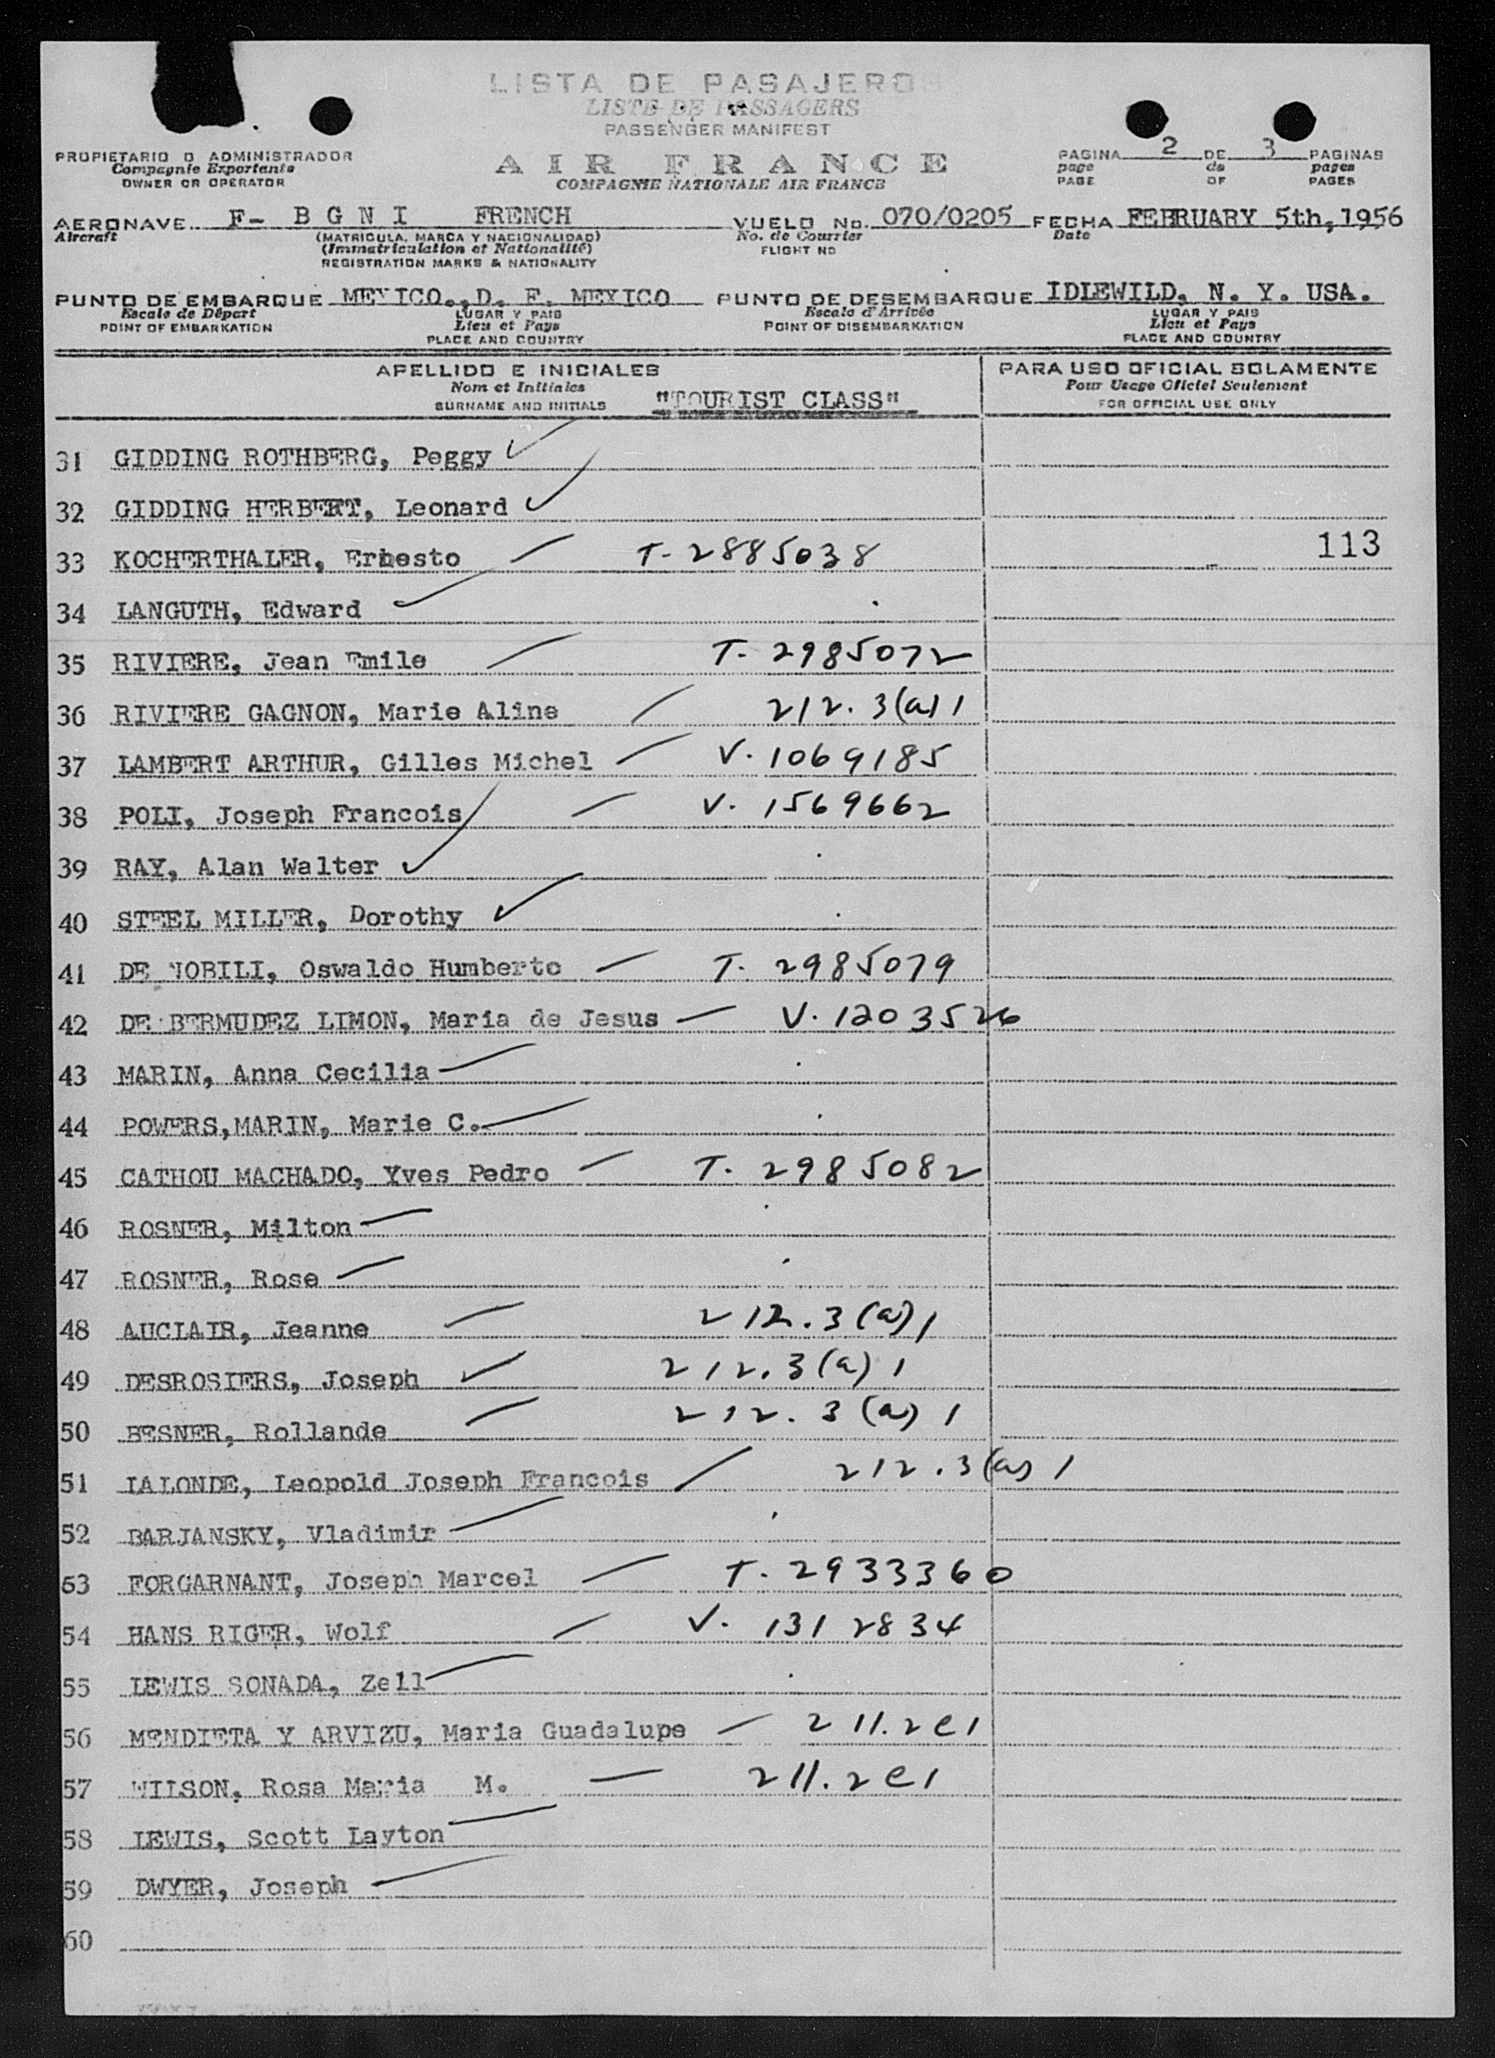 LISTA DE PASAJEROS
LISTE DE PASSAGERS
PASSENGER MANIFEST
PROPIETARIO O ADMINISTRADOR
Compagnie Exportante
OWNER OR OPERATOR
AIR FRANCE
COMPAGNIE NATIONALE AIR FRANCE
PAGINA 2 DE 3 PAGINAS
page de pages
PAGE OF PAGES
AERONAVE F- B G N I FRENCH VUELO No. 070/0205 FECHA FEBRUARY 5th, 1956
Aircraft (MATRICULA, MARCA Y NACIONALIDAD) No. de Courrier Date
(Immatriculation et Nationalité) FLIGHT NO
REGISTRATION MARKS & NATIONALITY
PUNTO DE EMBARQUE MEXICO., D. F. MEXICO PUNTO DE DESEMBARQUE IDLEWILD, N. Y. USA.
Escale de Départ LUGAR Y PAIS Escale d'Arrivée LUGAR Y PAIS
POINT OF EMBARKATION Lieu et Pays POINT OF DISEMBARKATION Lieu et Pays
PLACE AND COUNTRY PLACE AND COUNTRY
APELLIDO E INICIALES PARA USO OFICIAL SOLAMENTE
Nom et Initiales Pour Usage Oficiel Seulement
SURNAME AND INITIALS "TOURIST CLASS" FOR OFFICIAL USE ONLY
31 GIDDING ROTHBERG, Peggy
32 GIDDING HERBERT, Leonard
33 KOCHERTHALER, Ernesto T- 2885038 113
34 LANGUTH, Edward
35 RIVIERE, Jean Emile T- 2985072
36 RIVIERE GAGNON, Marie Aline 212. 3(a) 1
37 LAMBERT ARTHUR, Gilles Michel V. 1069185
38 POLI, Joseph Francois V. 1569662
39 RAY, Alan Walter
40 STEEL MILLER, Dorothy
41 DE NOBILI, Oswaldo Humberto T. 2985079
42 DE BERMUDEZ LIMON, Maria de Jesus V. 1203526
43 MARIN, Anna Cecilia
44 POWERS,MARIN, Marie C.
45 CATHOU MACHADO, Yves Pedro T. 2985082
46 ROSNER, Milton
47 ROSNER, Rose
48 AUCLAIR, Jeanne 212. 3 (a) 1
49 DESROSIERS, Joseph 212. 3 (a) 1
50 BESNER, Rollande 212. 3 (a) 1
51 LALONDE, Leopold Joseph Francois 212. 3(a) 1
52 BARJANSKY, Vladimir
53 FORGARNANT, Joseph Marcel T. 2933360
54 HANS RIGER, Wolf V. 1312834
55 LEWIS SONADA, Zell
56 MENDIETA Y ARVIZU, Maria Guadalupe 211. 2 e 1
57 WILSON, Rosa Maria M. 211. 2 e 1
58 LEWIS, Scott Layton
59 DWYER, Joseph
60